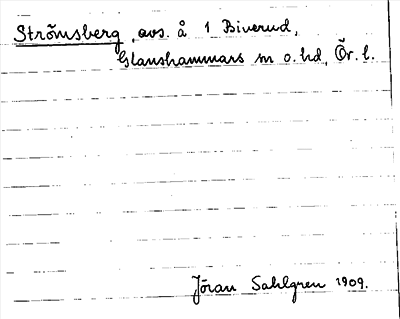 Strömsberg, avs. å 1 Biverud,
Glanshammars sn o. hd, Ör. l.
Jöran Sahlgren 1909.